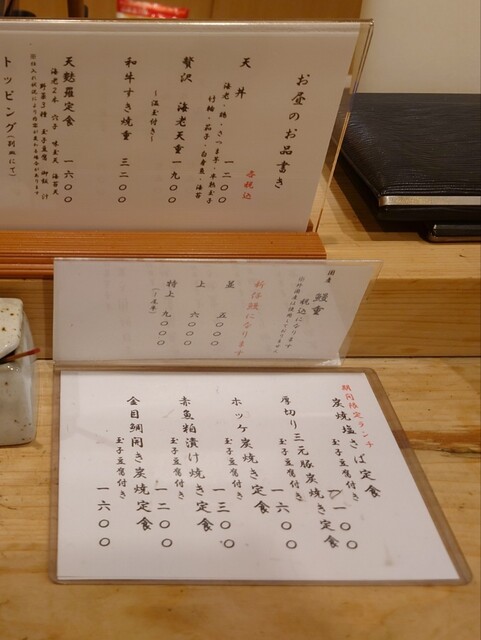 お昼のお品書き
各税込
天丼 一二〇〇
海老・鶏・さつま芋・半熟玉子
竹輪・茄子・白身魚・海苔
贅沢 海老天重 一九〇〇
〜温玉付き〜
和牛すき焼重 三二〇〇
天麩羅定食 一六〇〇
海老2本 穴子 味玉天 海苔天
野菜3種 玉子豆腐 御飯 汁
トッピング(別皿にて)
国産 鰻重
税込になります
新価格になります
並 五〇〇〇
上 六〇〇〇
特上 九〇〇〇
期間限定ランチ
炭焼塩さば定食
玉子豆腐付き 一一〇〇
厚切り三元豚炭焼き定食
玉子豆腐付き 一六〇〇
ホッケ炭焼き定食
玉子豆腐付き 一三〇〇
赤魚粕漬け焼き定食
玉子豆腐付き 一二〇〇
金目鯛開き炭焼定食
玉子豆腐付き 一六〇〇